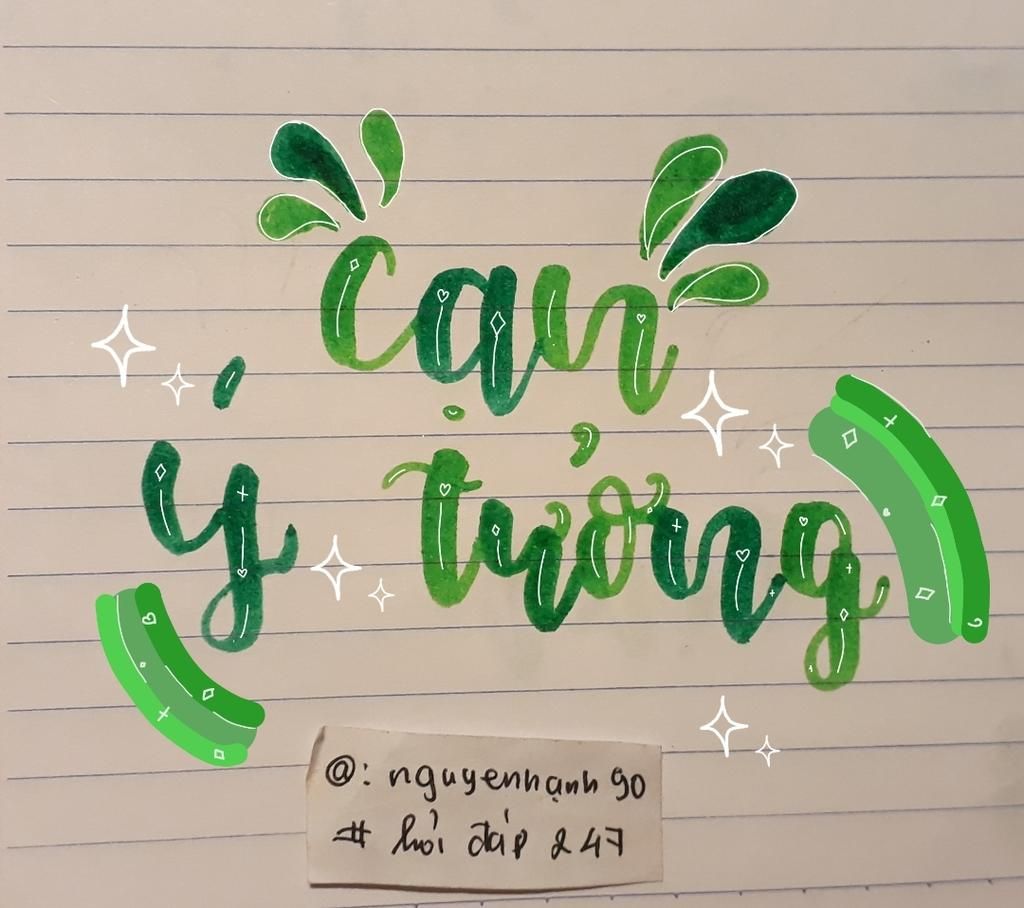 cạn
ý tưởng
@: nguyenhạnh90
# hỏi đáp 247